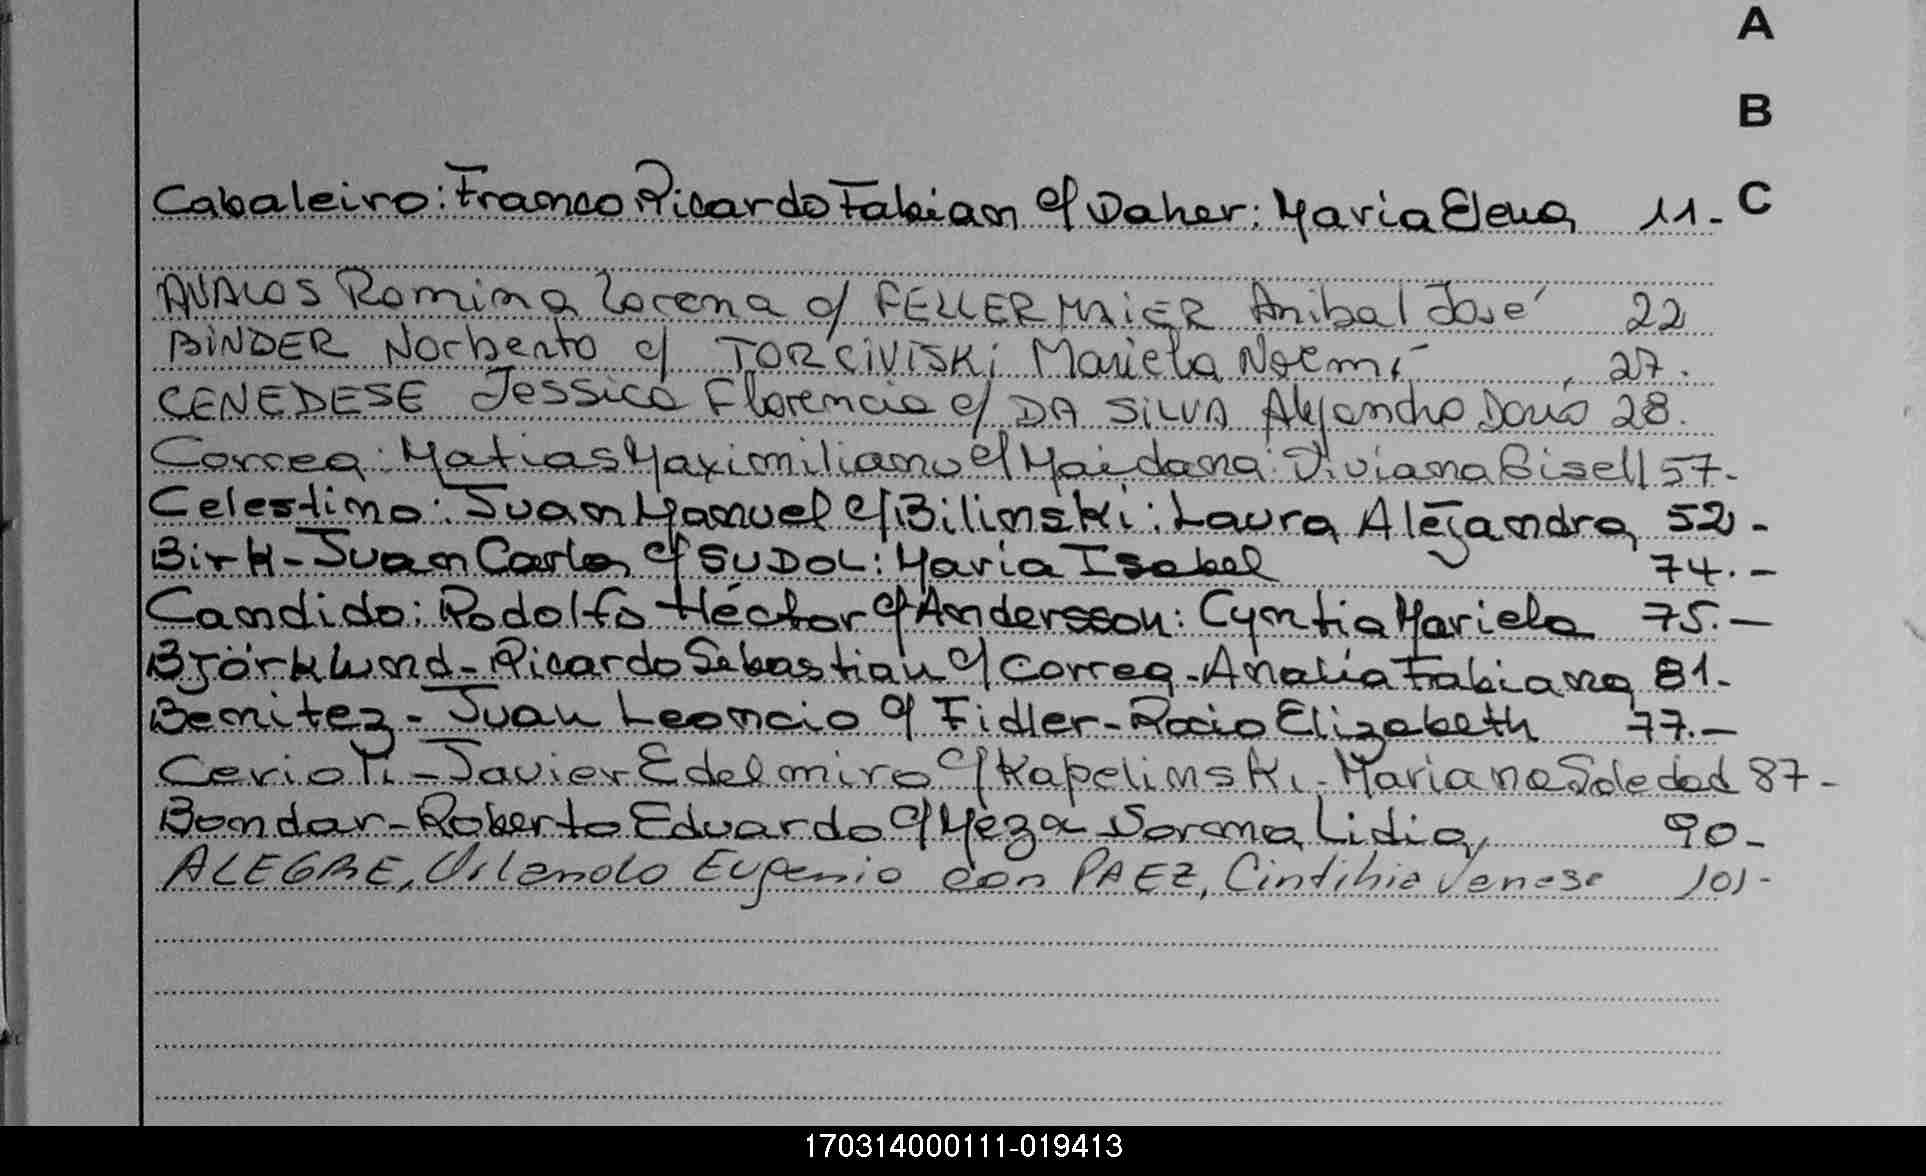 A
B
C
Cabaleiro: Franco Ricardo Fabian c/ Daher: Maria Elena 11.-
AVALOS Romina Lorena c/ FELLERMAIER Anibal José 22
BINDER Norberto c/ TORCIVISKI Mariela Noemí 27.
CENEDESE Jessica Florencia c/ DA SILVA Alejandro Dario 28.
Correa: Matias Maximiliano c/ Maidana: Viviana Gisell 57-
Celestino: Juan Manuel c/ Bilinski: Laura Alejandra 52-
Birk-Juan Carlos c/ SUDOL: Maria Isabel 74.-
Candido: Rodolfo Héctor c/ Andersson: Cyntia Mariela 75.-
Björklund-Ricardo Sebastian c/ Correa-Analia Fabiana 81-
Benitez-Juan Leoncio c/ Fidler-Rocio Elizabeth 77.-
Cerioti-Javier Edelmiro c/ Kapelinski-Mariana Soledad 87-
Bondar-Roberto Eduardo c/ Meza Lidia 90-
ALEGRE, Orlando Eugenio con PAEZ, Cintihia Venesa 101-
170314000111-019413